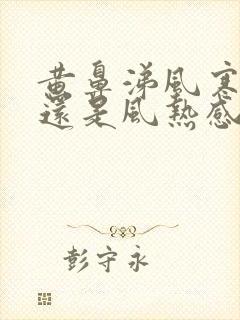 黄鼻涕風寒
還是風熱感
彭守永